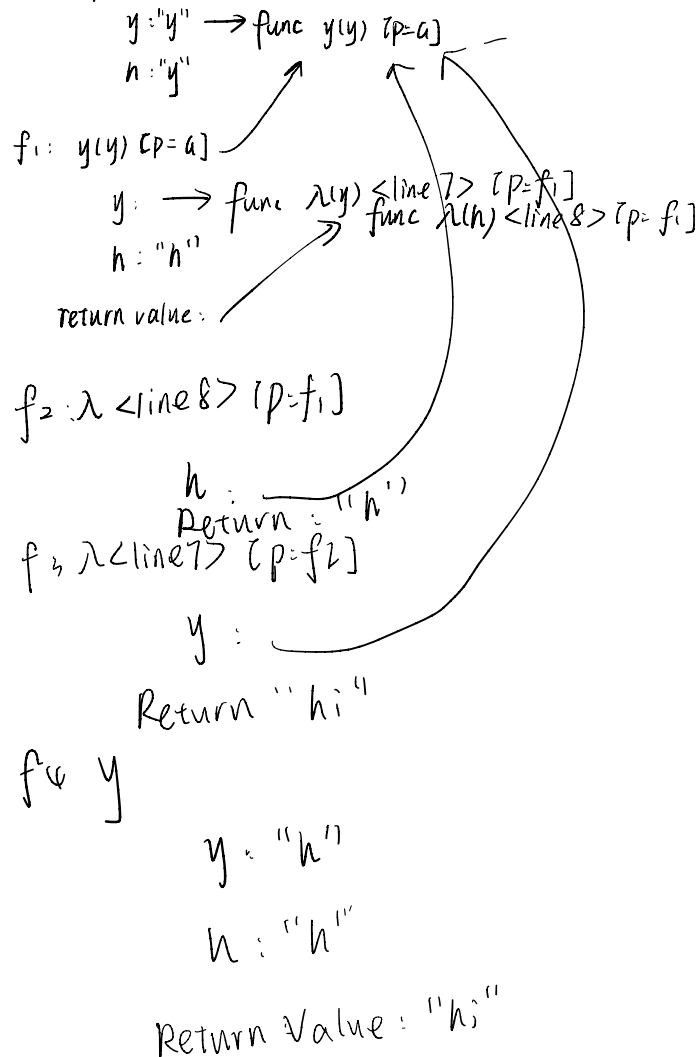 y : "y" → func y(y) [p=a]
h : "y"
f1: y(y) [p=a]
y: → func λ(y) <line 7> [p=f1]
func λ(h) <line 8> [p=f1]
h : "h"
return value:
f2 : λ <line 8> [p=f1]
h :
Return : "h"
f3 λ<line7> [p=f2]
y :
Return "hi"
f4 y
y : "h"
h : "h"
Return Value : "hi"